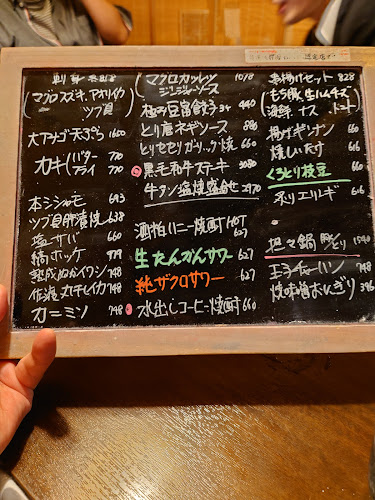 刺身各種 818
(マグロ.スズキ.アオリイカ
ツブ貝)
大アナゴ天ぷら 1660
カキ(バター 770
フライ 770
本シシャモ 693
ツブ貝肝醤焼 638
塩サバ 660
縞ホッケ 979
熟成ぬかイワシ 748
佐渡丸干しイカ 748
カニミソ 748
(マグロカツレツ 1078
ジンジャーソース)
極み豆富餃子 3ヶ 440
とり唐ネギソース 886
とりセセリガーリック焼 660
黒毛和牛ステーキ 3080
牛タン塩焼盛合 2970
酒粕ハニー焼酎 HOT
627
生たんかんサワー 627
純ザクロサワー 627
水出しコーヒー焼酎 660
串揚げセット 828
(もち豚、生ハムチーズ
海鮮、ナス トマト)
揚げギンナン 660
焼しいたけ 616
くろとり枝豆 660
炙りエリンギ 616
坦々鍋
玉子チャーハン 748
焼味噌おにぎり 396